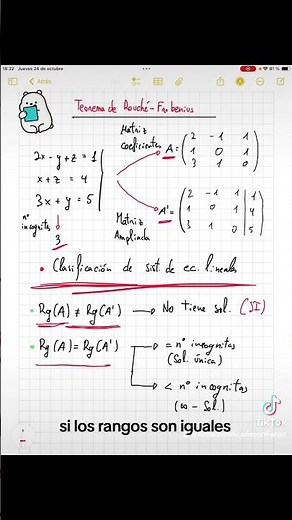 18:32 Jueves 24 de octubre
Atrás
Teorema de Rouché-Frobenius
Matriz coeficientes A = ( 2 -1 1
1 0 1
3 1 0 )
2x - y + z = 1
x + z = 4
3x + y = 5
nº incognitas
3
Matriz Ampliada A' = ( 2 -1 1 | 1
1 0 1 | 4
3 1 0 | 5 )
• Clasificación de sist. de ec. lineales
• Rg(A) ≠ Rg(A') → No tiene sol. (SI)
• Rg(A) = Rg(A') → = nº incognitas
(Sol. única)
→ < nº incognitas
(∞ - Sol.)
si los rangos son iguales
TikTok